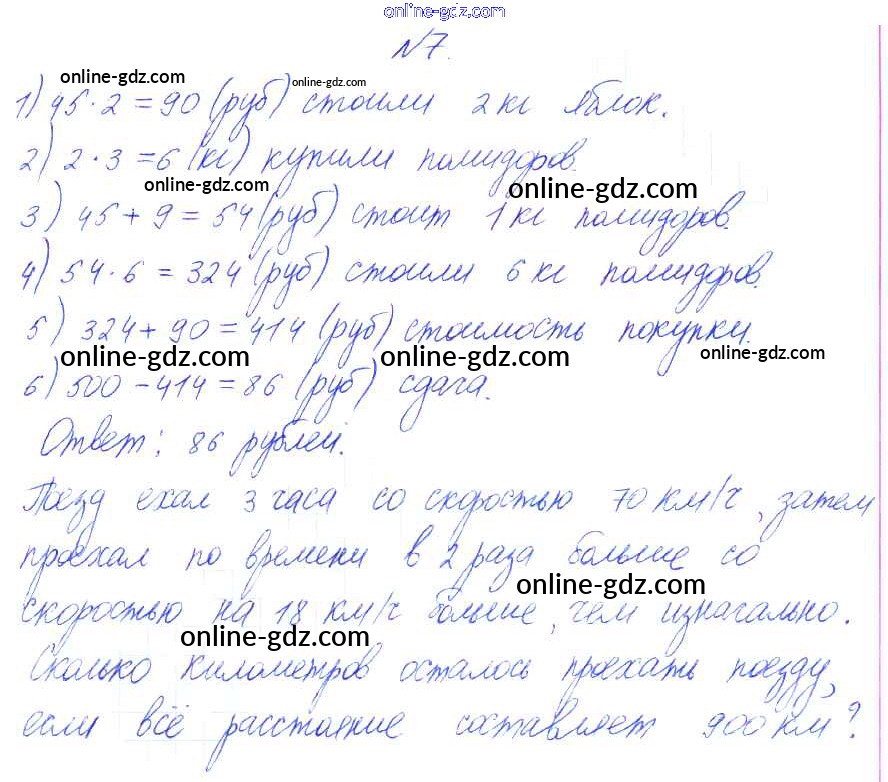 online-gdz.com
№7.
online-gdz.com online-gdz.com
1) 45·2=90 (руб) стоили 2 кг яблок.
2) 2·3=6 (кг) купили помидоров.
online-gdz.com online-gdz.com
3) 45+9=54 (руб) стоит 1 кг помидоров.
4) 54·6=324 (руб) стоили 6 кг помидоров.
5) 324+90=414 (руб) стоимость покупки.
online-gdz.com online-gdz.com online-gdz.com
6) 500-414=86 (руб) сдача.
Ответ: 86 рублей.
Поезд ехал 3 часа со скоростью 70 км/ч, затем
проехал по времени в 2 раза больше со
online-gdz.com
скоростью на 18 км/ч больше, чем изначально.
online-gdz.com
Сколько километров осталось проехать поезду,
если всё расстояние составляет 900 км?